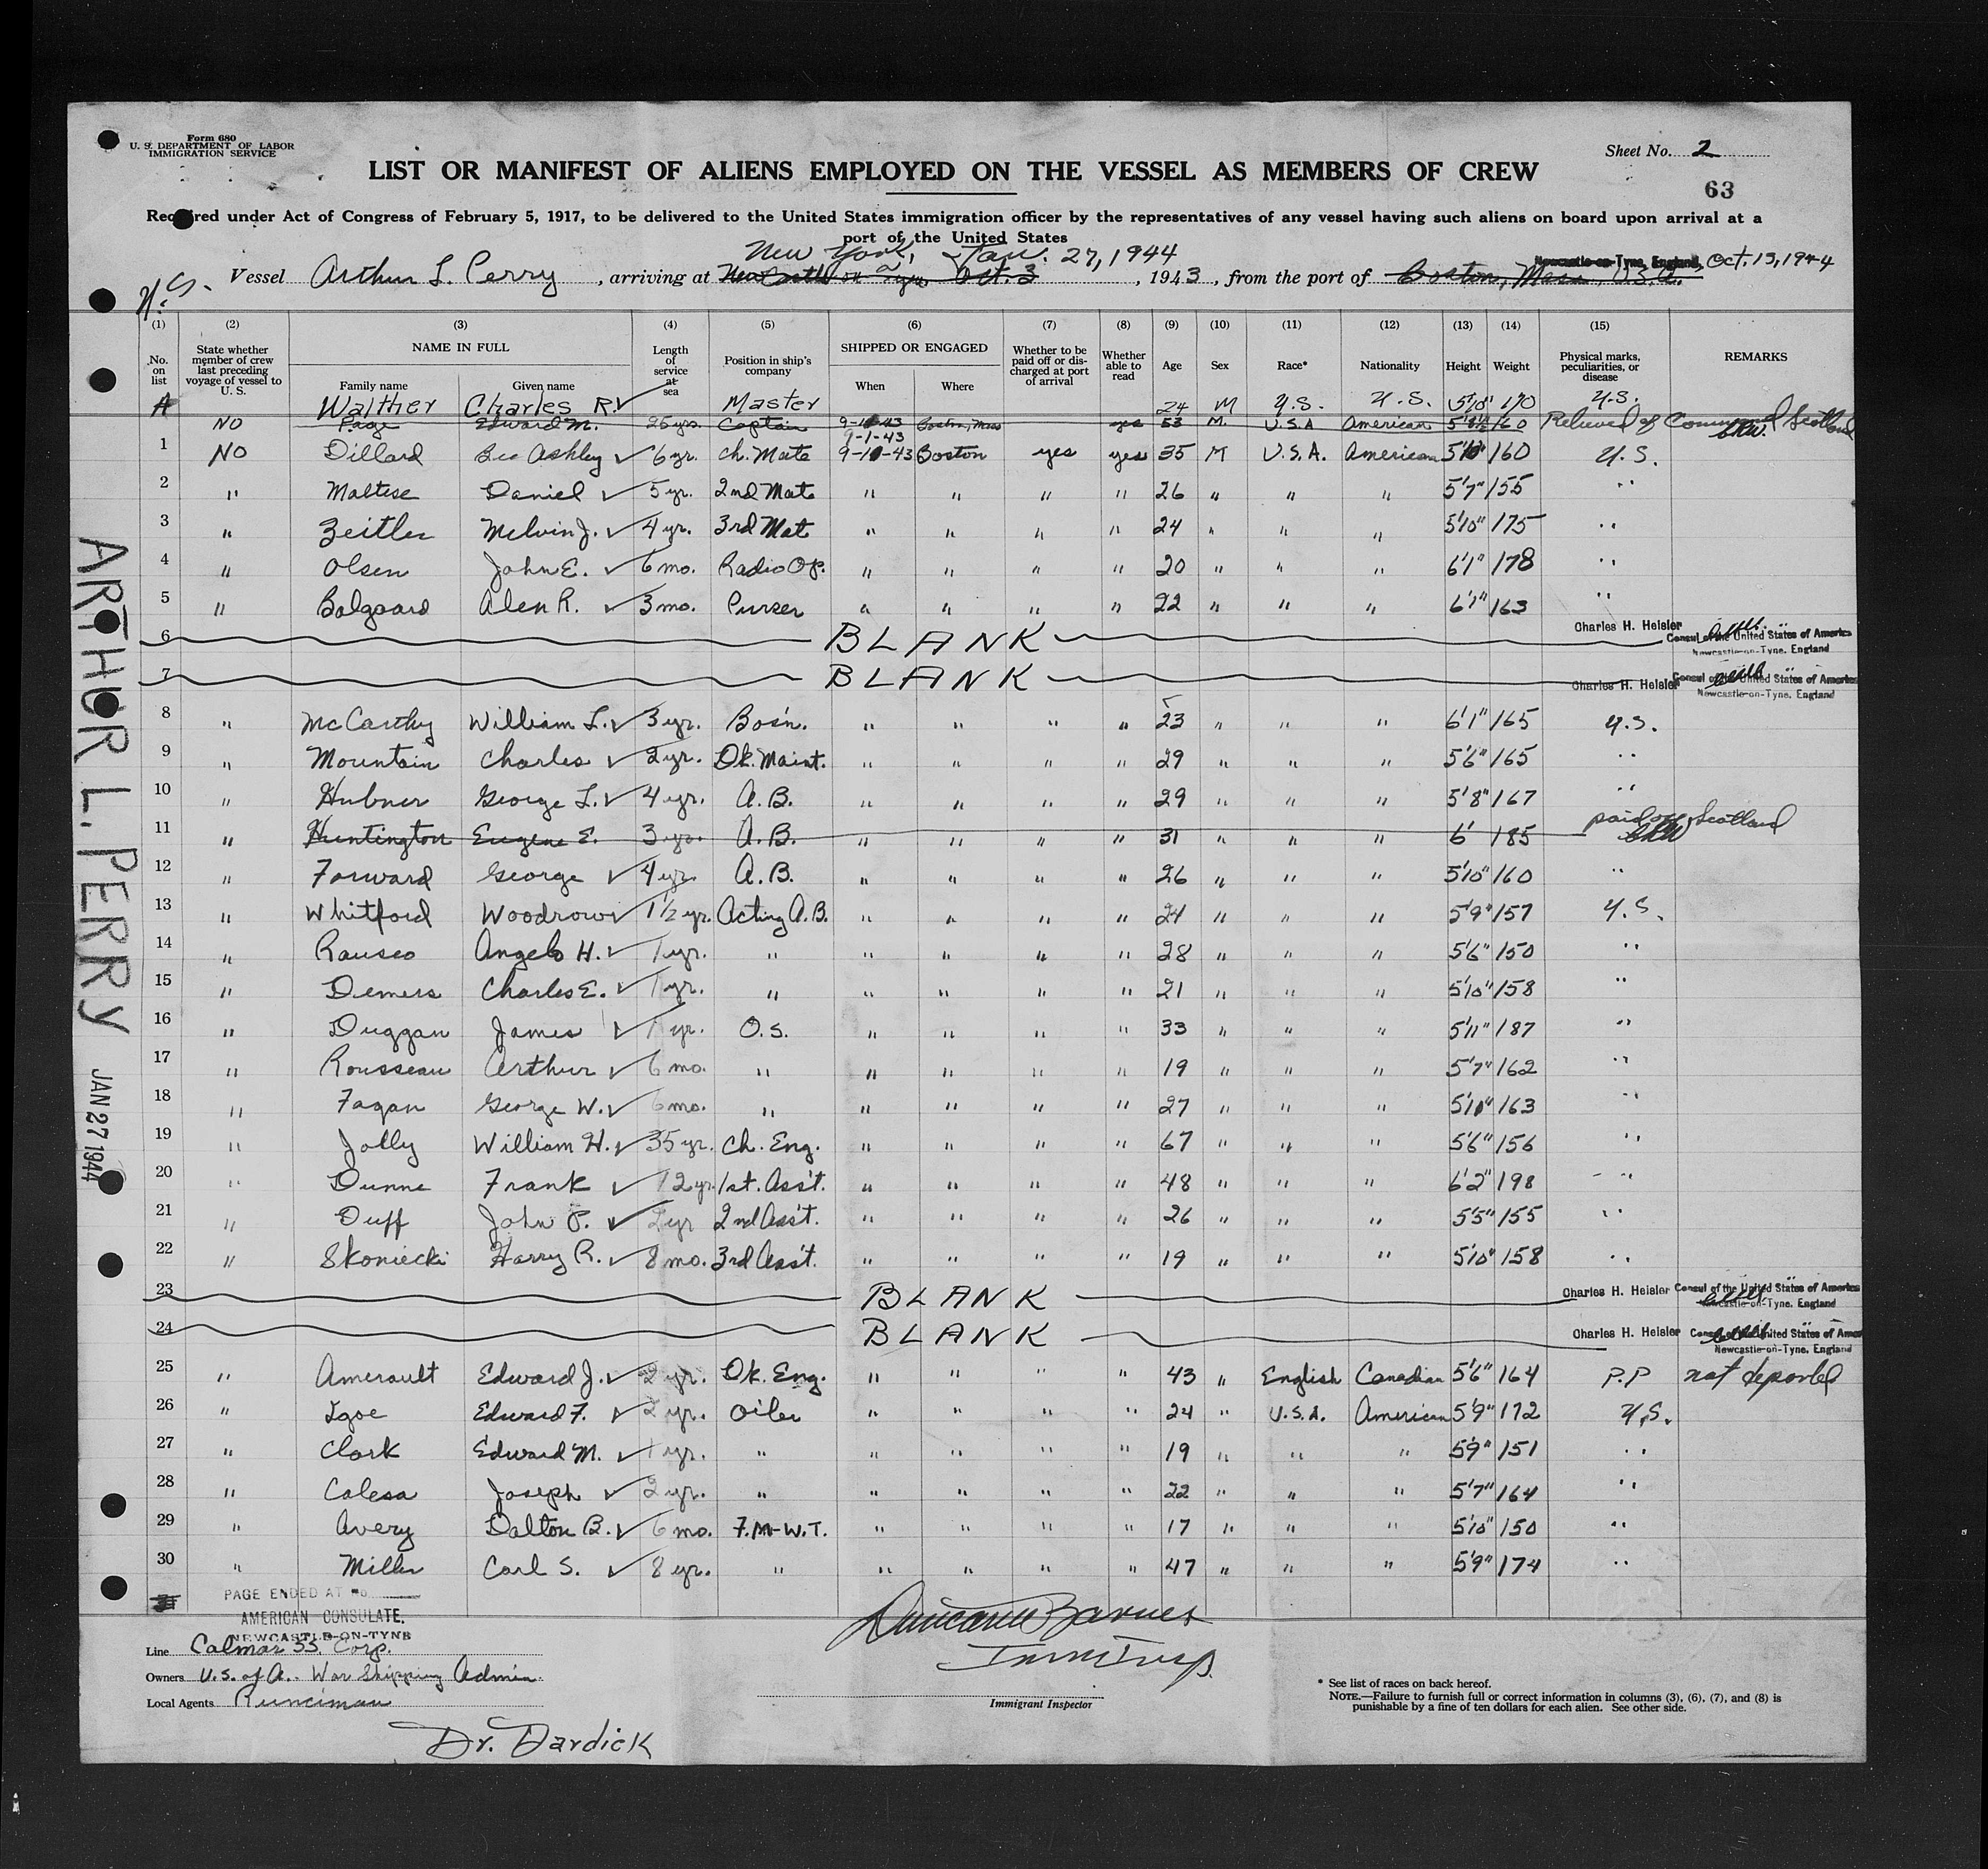 Form 680
U. S. DEPARTMENT OF LABOR
IMMIGRATION SERVICE
Sheet No. 2
LIST OR MANIFEST OF ALIENS EMPLOYED ON THE VESSEL AS MEMBERS OF CREW
63
Required under Act of Congress of February 5, 1917, to be delivered to the United States immigration officer by the representatives of any vessel having such aliens on board upon arrival at a
port of the United States
New York, Jan. 27, 1944
Newcastle-on-Tyne, England, Oct. 13, 1944
Vessel Arthur L. Perry, arriving at Newcastle on Tyne Oct. 3, 1943, from the port of Boston, Mass. U.S.A.
(1) (2) (3) (4) (5) (6) (7) (8) (9) (10) (11) (12) (13) (14) (15)
No. on list
State whether member of crew last preceding voyage of vessel to U. S.
NAME IN FULL
Family name Given name
Length of service at sea
Position in ship's company
SHIPPED OR ENGAGED
When Where
Whether to be paid off or discharged at port of arrival
Whether able to read
Age Sex Race* Nationality Height Weight
Physical marks, peculiarities, or disease
REMARKS
A Walther Charles R. ✓ Master 24 M U.S. U.S. 5'10" 170 U.S.
NO Page Edward M. 25 yrs. Captain Boston, Mass yes 53 M. U.S.A American 160 Relieved of Command Scotland
9-1-43
1 NO Dillard Geo Ashley ✓ 6 yr. Ch. Mate 9-1-43 Boston yes yes 35 M U.S.A. American 5'10" 160 U.S.
2 " Maltese Daniel ✓ 5 yr. 2nd Mate " " " " 26 " " " 5'7" 155 "
3 " Zeitler Melvin J. ✓ 4 yr. 3rd Mate " " " " 24 " " " 5'10" 175 "
4 " Olsen John E. ✓ 6 mo. Radio Op. " " " " 20 " " " 6'1" 178 "
5 " Bolgaard Alen R. ✓ 3 mo. Purser " " " " 22 " " " 6'1" 163 "
6 BLANK Charles H. Heisler Consul of the United States of America
Newcastle-on-Tyne, England
7 BLANK Charles H. Heisler Consul of the United States of America
Newcastle-on-Tyne, England
8 " McCarthy William L. ✓ 3 yr. Bos'n. " " " " 23 " " " 6'1" 165 U.S.
9 " Mountain Charles ✓ 2 yr. Dk. Maint. " " " " 29 " " " 5'6" 165 "
10 " Hubner George L. ✓ 4 yr. A.B. " " " " 29 " " " 5'8" 167 "
11 " Huntington Eugene E. 3 yr. A.B. " " " " 31 " " " 6' 185 paid off Scotland
12 " Forward George ✓ 4 yr. A.B. " " " " 26 " " " 5'10" 160 "
13 " Whitford Woodrow ✓ 1 1/2 yr. Acting A.B. " " " " 24 " " " 5'9" 157 U.S.
14 " Rauseo Angelo H. ✓ 1 yr. " " " " " 28 " " " 5'6" 150 "
15 " Demers Charles E. ✓ 1 yr. " " " " " 21 " " " 5'10" 158 "
16 " Duggan James ✓ 1 yr. O.S. " " " " 33 " " " 5'11" 187 "
17 " Rousseau Arthur ✓ 6 mo. " " " " " 19 " " " 5'7" 162 "
18 " Fagan George W. ✓ 6 mo. " " " " " 27 " " " 5'10" 163 "
19 " Jolly William H. ✓ 35 yr. Ch. Eng. " " " " 67 " " " 5'6" 156 "
20 " Dunne Frank ✓ 12 yr. 1st. Ass't. " " " " 48 " " " 6'2" 198 "
21 " Duff John P. ✓ 2 yr 2nd Ass't. " " " " 26 " " " 5'5" 155 "
22 " Skoniecki Harry R. ✓ 8 mo. 3rd Ass't. " " " " 19 " " " 5'10" 158 "
23 BLANK Charles H. Heisler Consul of the United States of America
Newcastle-on-Tyne, England
24 BLANK Charles H. Heisler Consul of the United States of Amer
Newcastle-on-Tyne, England
25 " Amerault Edward J. ✓ 2 yr. Dk. Eng. " " " " 43 " English Canadian 5'6" 164 P.P not deported
26 " Igoe Edward F. ✓ 2 yr. Oiler " " " " 24 " U.S.A. American 5'9" 172 U.S.
27 " Clark Edward M. ✓ 1 yr. " " " " " 19 " " " 5'9" 151 "
28 " Calesa Joseph ✓ 2 yr. " " " " " 22 " " " 5'7" 164 "
29 " Avery Dalton B. ✓ 6 mo. F.M-W.T. " " " " 17 " " " 5'10" 150 "
30 " Miller Carl S. ✓ 8 yr. " " " " " 47 " " " 5'9" 174 "
PAGE ENDED AT No.
AMERICAN CONSULATE,
NEWCASTLE-ON-TYNE
Line Calmar SS. Corp.
Owners U.S. of A. War Shipping Admin.
Local Agents Runciman
Dr. Dardick
Immigrant Inspector
* See list of races on back hereof.
NOTE.—Failure to furnish full or correct information in columns (3), (6), (7), and (8) is
punishable by a fine of ten dollars for each alien. See other side.
ARTHUR L. PERRY
JAN 27 1944